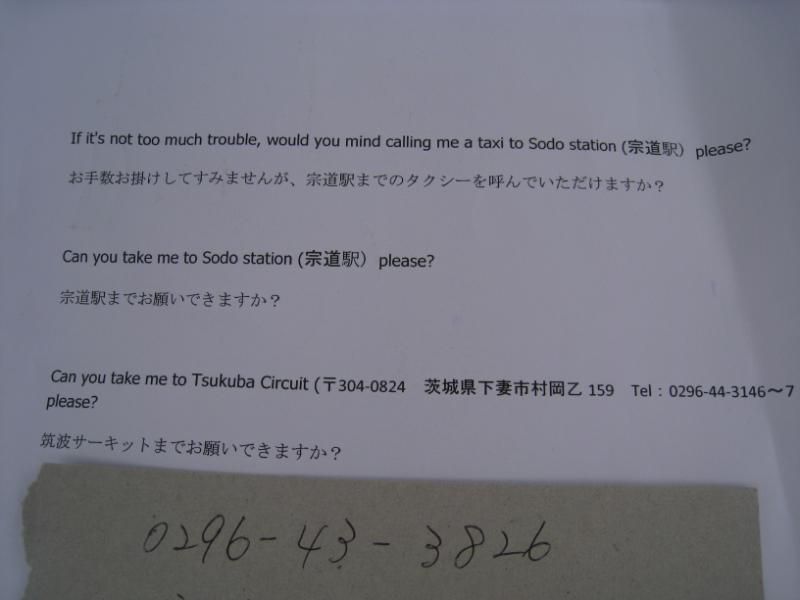 If it's not too much trouble, would you mind calling me a taxi to Sodo station (宗道駅） please?
お手数お掛けしてすみませんが、宗道駅までのタクシーを呼んでいただけますか？
Can you take me to Sodo station (宗道駅） please?
宗道駅までお願いできますか？
Can you take me to Tsukuba Circuit (〒304-0824　茨城県下妻市村岡乙 159　Tel：0296-44-3146〜7
please?
筑波サーキットまでお願いできますか？
0296-43-3826